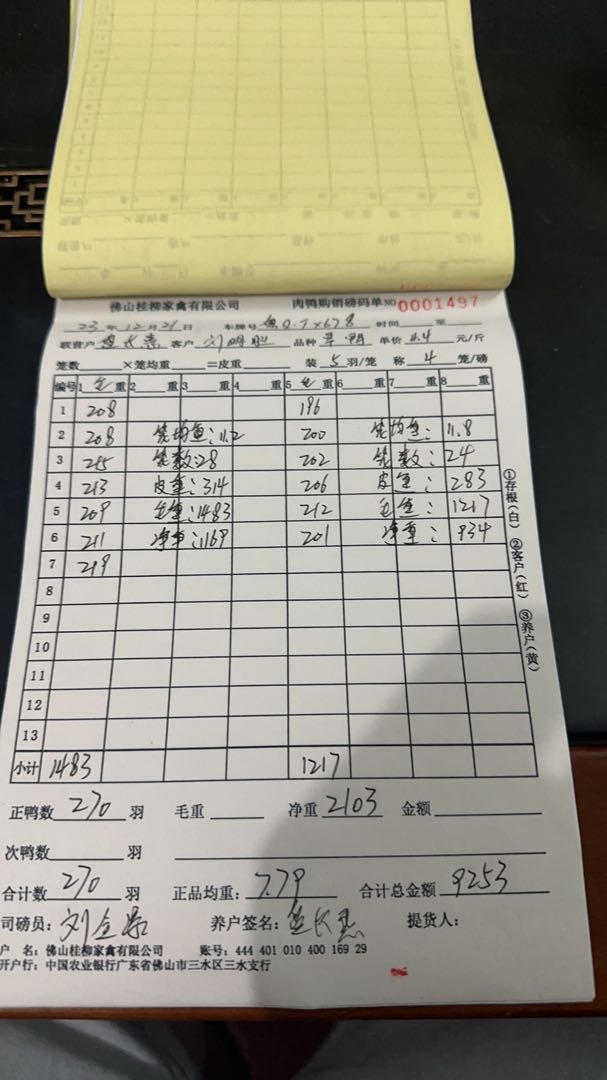 佛山桂柳家禽有限公司 肉鸭购销磅码单 NO 0001497
23年12月21日 车牌号 粤Q.JX678 时间 至
联营户 客户 刘明 品种 旱鸭 单价 4.4 元/斤
笼数 ×笼均重 =皮重 装 5 羽/笼 称 4 笼/磅
编号 1 毛 重 2 重 3 重 4 重 5 毛 重 6 重 7 重 8 重
1 208 196
2 208 笼均重：11.2 200 笼均重：11.8
3 215 笼数：28 202 笼数：24
4 213 皮重：314 206 皮重：283
5 209 毛重：1483 212 毛重：1217
6 211 净重：1169 201 净重：934
7 219
8
9
10
11
12
13
小计 1483 1217
①存根(白) ②客户(红) ③养户(黄)
正鸭数 270 羽 毛重 净重 2103 金额
次鸭数 羽
合计数 270 羽 正品均重：7.79 合计总金额 9253
司磅员：刘 养户签名： 提货人：
户 名：佛山桂柳家禽有限公司 账号：444 401 010 400 169 29
开户行：中国农业银行广东省佛山市三水区三水支行